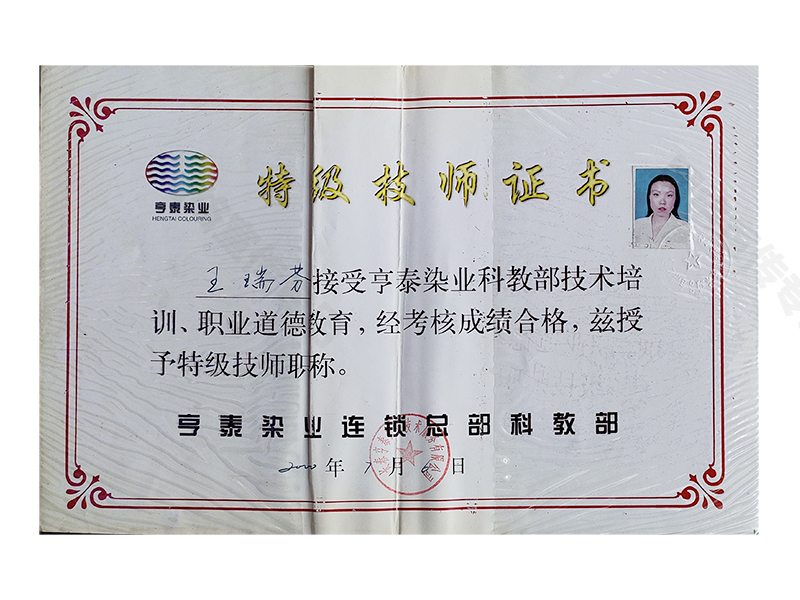 特级技师证书
亨泰染业
HENGTAI COLOURING
王瑞芬接受亨泰染业科教部技术培
训、职业道德教育，经考核成绩合格，兹授
予特级技师职称。
亨泰染业连锁总部科教部
2000年7月6日